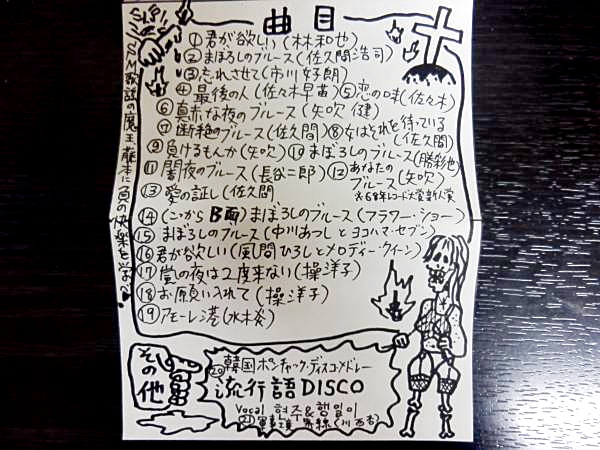 曲目
①君が欲しい(林和也)
②まぼろしのブルース(佐久間浩司)
③忘れさせて(市川好朗)
④最後の人(佐々木早苗)⑤恋の味(佐々木)
⑥真赤な夜のブルース(矢吹健)
⑦断絶のブルース(佐久間)⑧女はそれを待っている
(佐久間)
⑨負けるもんか(矢吹)⑩まぼろしのブルース(勝彩也)
⑪闇夜のブルース(長谷二郎)⑫あなたの
ブルース(矢吹)
68年レコード大賞新人賞
⑬愛の証し(佐久間
⑭(ここからB面)まぼろしのブルース(フラワー・ショー)
⑮まぼろしのブルース(中川あつしとヨコハマ・セブン)
⑯君が欲しい(風間ひろしとメロディー・クイーン)
⑰蛍の夜は2度来ない(操洋子)
⑱お願い入れて(操洋子)
⑲アモーレ湊(水木炎)
その他
⑳韓国ポンチャック・ディスコメドレー
流行語DISCO
Vocal 현주&행일이
㉑
歌謡の魔王、藤本に負の快楽を学ぶ